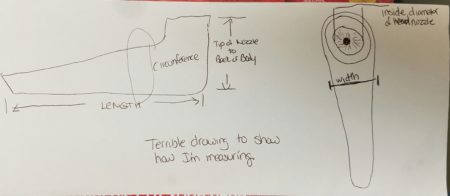 Circumference
Tip of Nozzle
to
Back of Body
LENGTH
Terrible drawing to show
how I'm measuring.
inside diameter
of nozzle
width